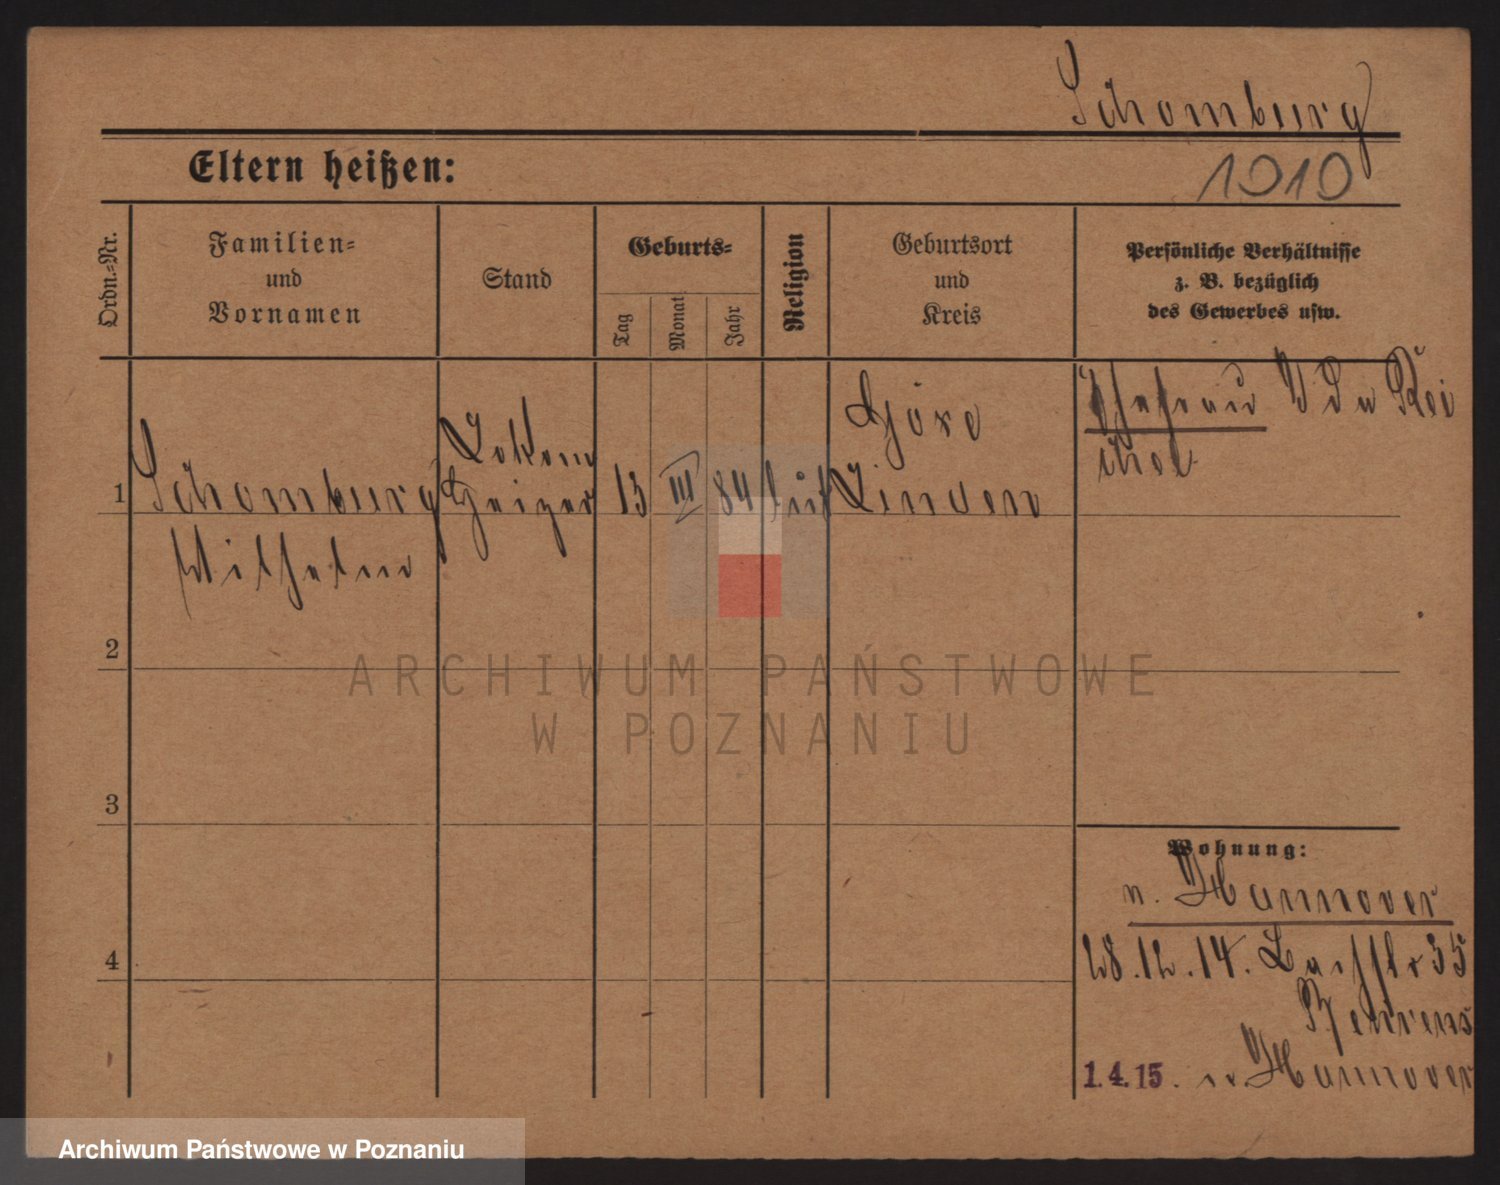 Schomburg
Eltern heißen:
1910
Ordn.-Nr.
Familien-
und
Vornamen
Stand
Geburts-
Tag
Monat
Jahr
Religion
Geburtsort
und
Kreis
Persönliche Verhältnisse
z. B. bezüglich
des Gewerbes usw.
1
Schomburg
Wilhelm
Lokom
Heizer
13
III
84
luth
Linden
Ehefrau
2
3
4
Wohnung:
n. Hannover
28.12.14. 35
Behrens
1.4.15. n. Hannover
ARCHIWUM PAŃSTWOWE
W POZNANIU
Archiwum Państwowe w Poznaniu